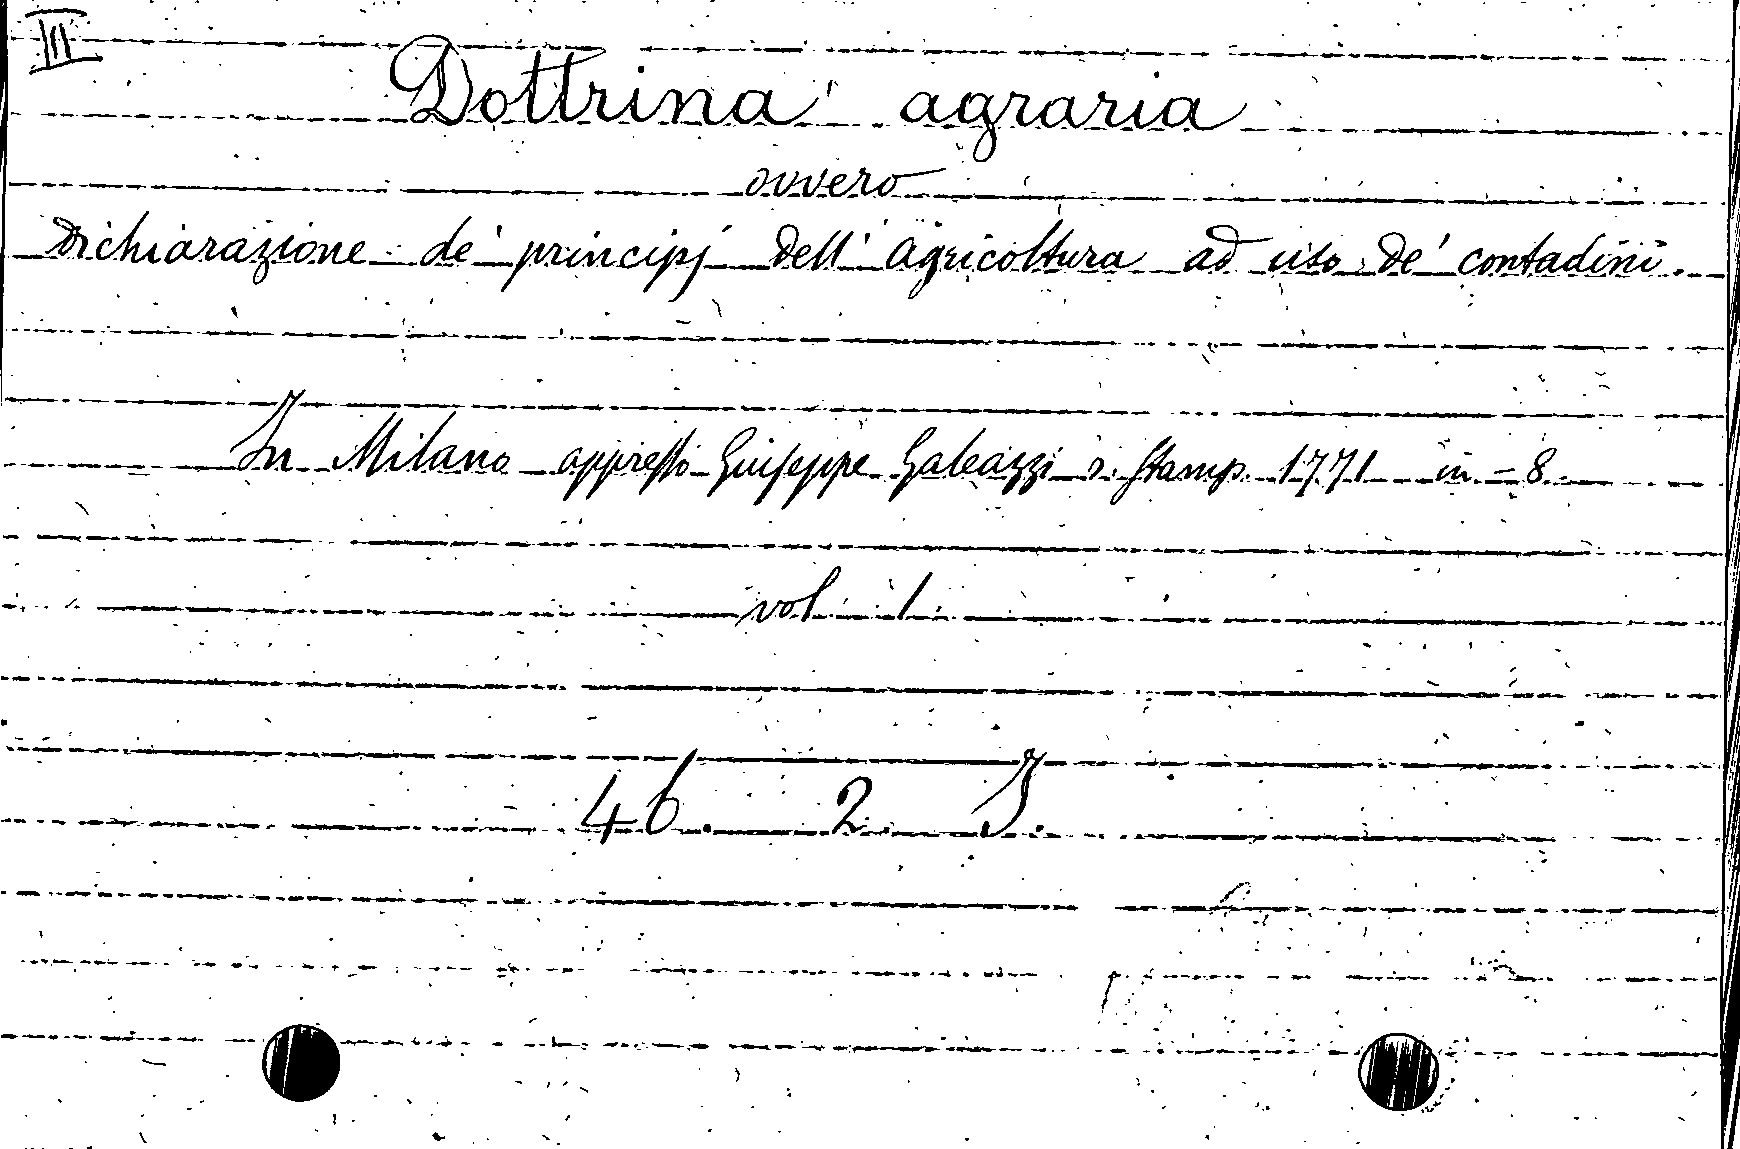 III
Dottrina agraria
ovvero
Dichiarazione de' principj dell' agricoltura ad uso de' contadini.
In Milano appresso Giuseppe Galeazzi r. stamp. 1771 in-8.
vol. 1.
46. 2. I.